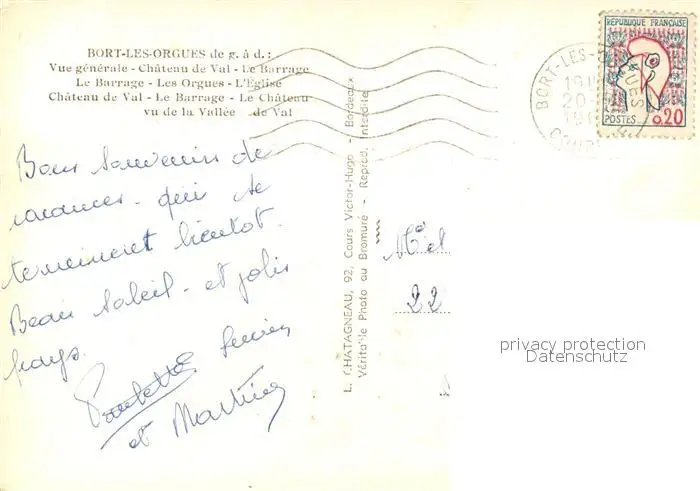 BORT-LES-ORGUES de g. à d. :
Vue générale - Château de Val - Le Barrage
Le Barrage - Les Orgues - L'Eglise
Château de Val - Le Barrage - Le Château
vu de la Vallée de Val
Bons souvenirs de
vacances - qui se
terminent bientot.
Beau soleil - et jolis
pays.
Paulette
et Martine
L. CHATAGNEAU, 92, Cours Victor-Hugo - Bordeaux
Véritable Photo au Bromure - Reprod. Interdite
22
BORT-LES-ORGUES
REPUBLIQUE FRANÇAISE
POSTES 0,20
privacy protection
Datenschutz